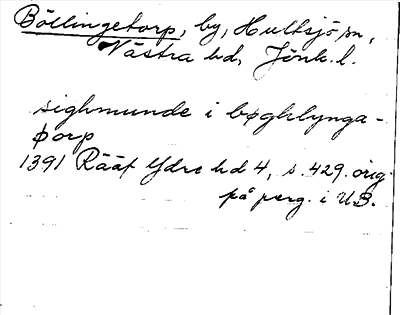 Böllingetorp, by, Hultsjö sn,
Västra hd, Jönk. l.
sighmunde i bøghlynga-
þorp
1391 Rääf Ydre hd 4, s. 429. orig.
på perg. i UB.